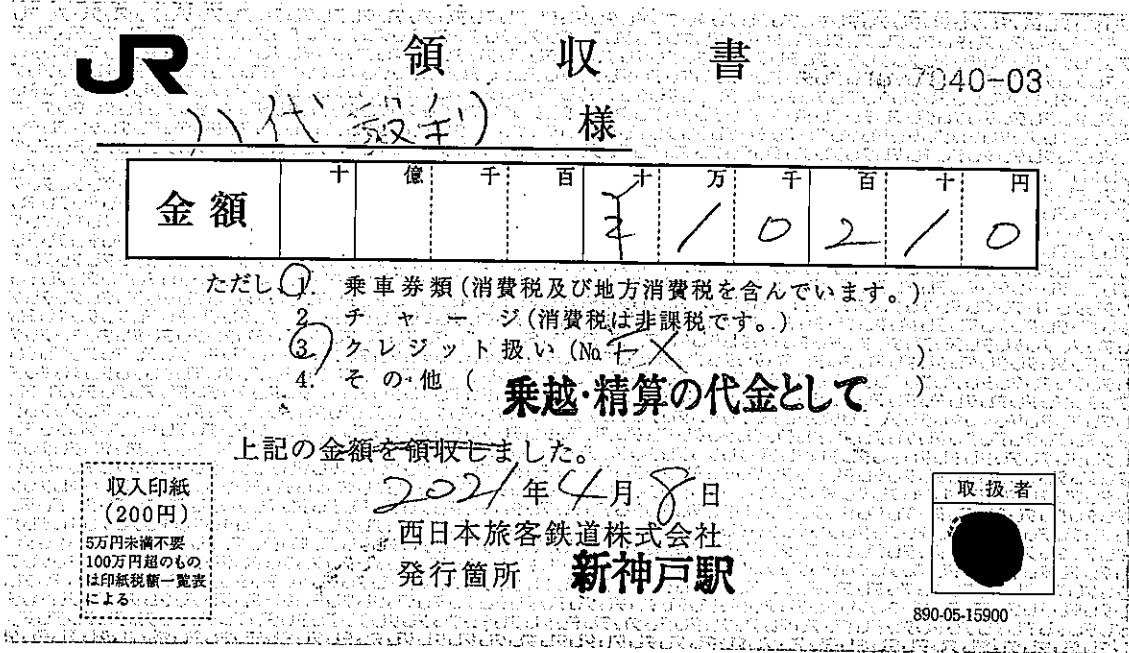 JR 領収書 7040-03
八代 毅利 様
金額 十 億 千 百 十 万 千 百 十 円
¥ 1 0 2 1 0
ただし、1. 乗車券類(消費税及び地方消費税を含んでいます。)
2. チャージ(消費税は非課税です。)
3. クレジット扱い(No. EX )
4. その他( 乗越・精算の代金として )
上記の金額を領収しました。
2021年4月8日
西日本旅客鉄道株式会社
発行箇所 新神戸駅
収入印紙
(200円)
5万円未満不要
100万円超のもの
は印紙税額一覧表
による
取扱者
890-05-15900